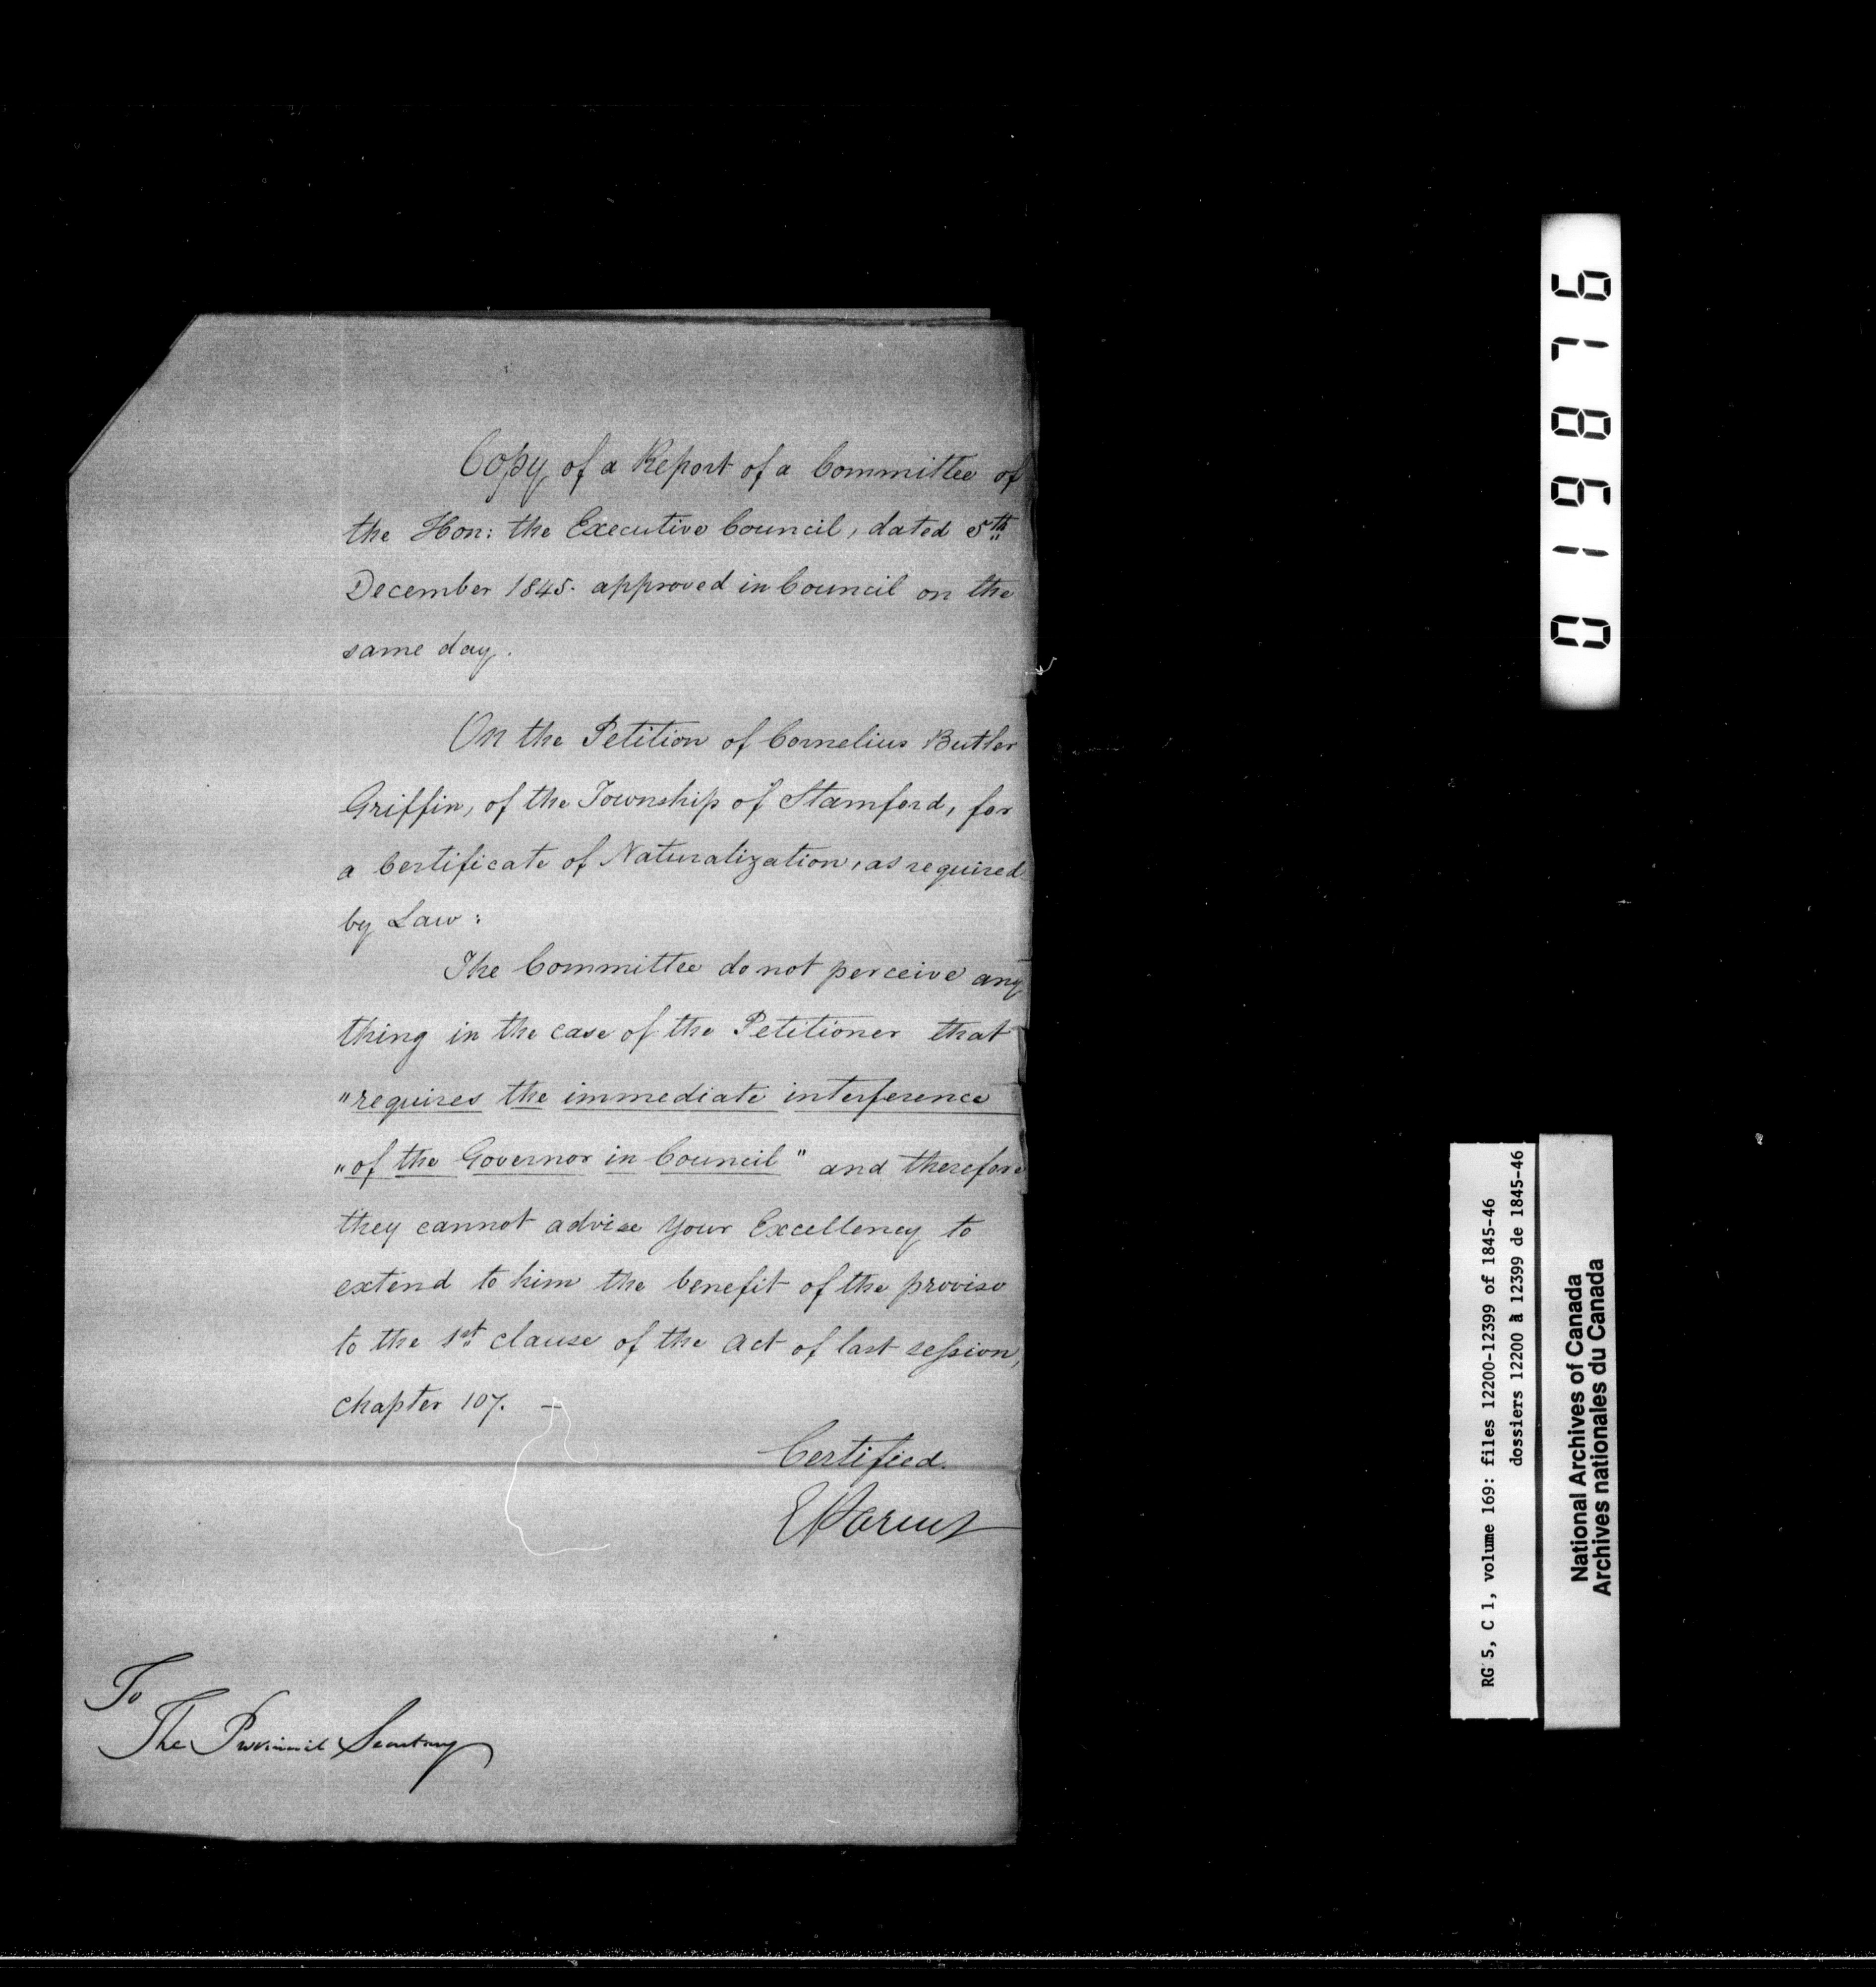 Copy of a Report of a Committee of
the Hon: the Executive Council, dated 5th
December 1845. approved in Council on the
same day.
On the Petition of Cornelius Butler
Griffin, of the Township of Stamford, for
a Certificate of Naturalization, as required
by Law:
The Committee do not perceive any
thing in the case of the Petitioner that
"requires the immediate interference
"of the Governor in Council" and therefore
they cannot advise Your Excellency to
extend to him the benefit of the proviso
to the 1st clause of the Act of last session,
chapter 107. —
Certified.
E Parent
To
The Provincial Secretary
019876
RG 5, C 1, volume 169: files 12200-12399 of 1845-46
dossiers 12200 à 12399 de 1845-46
National Archives of Canada
Archives nationales du Canada